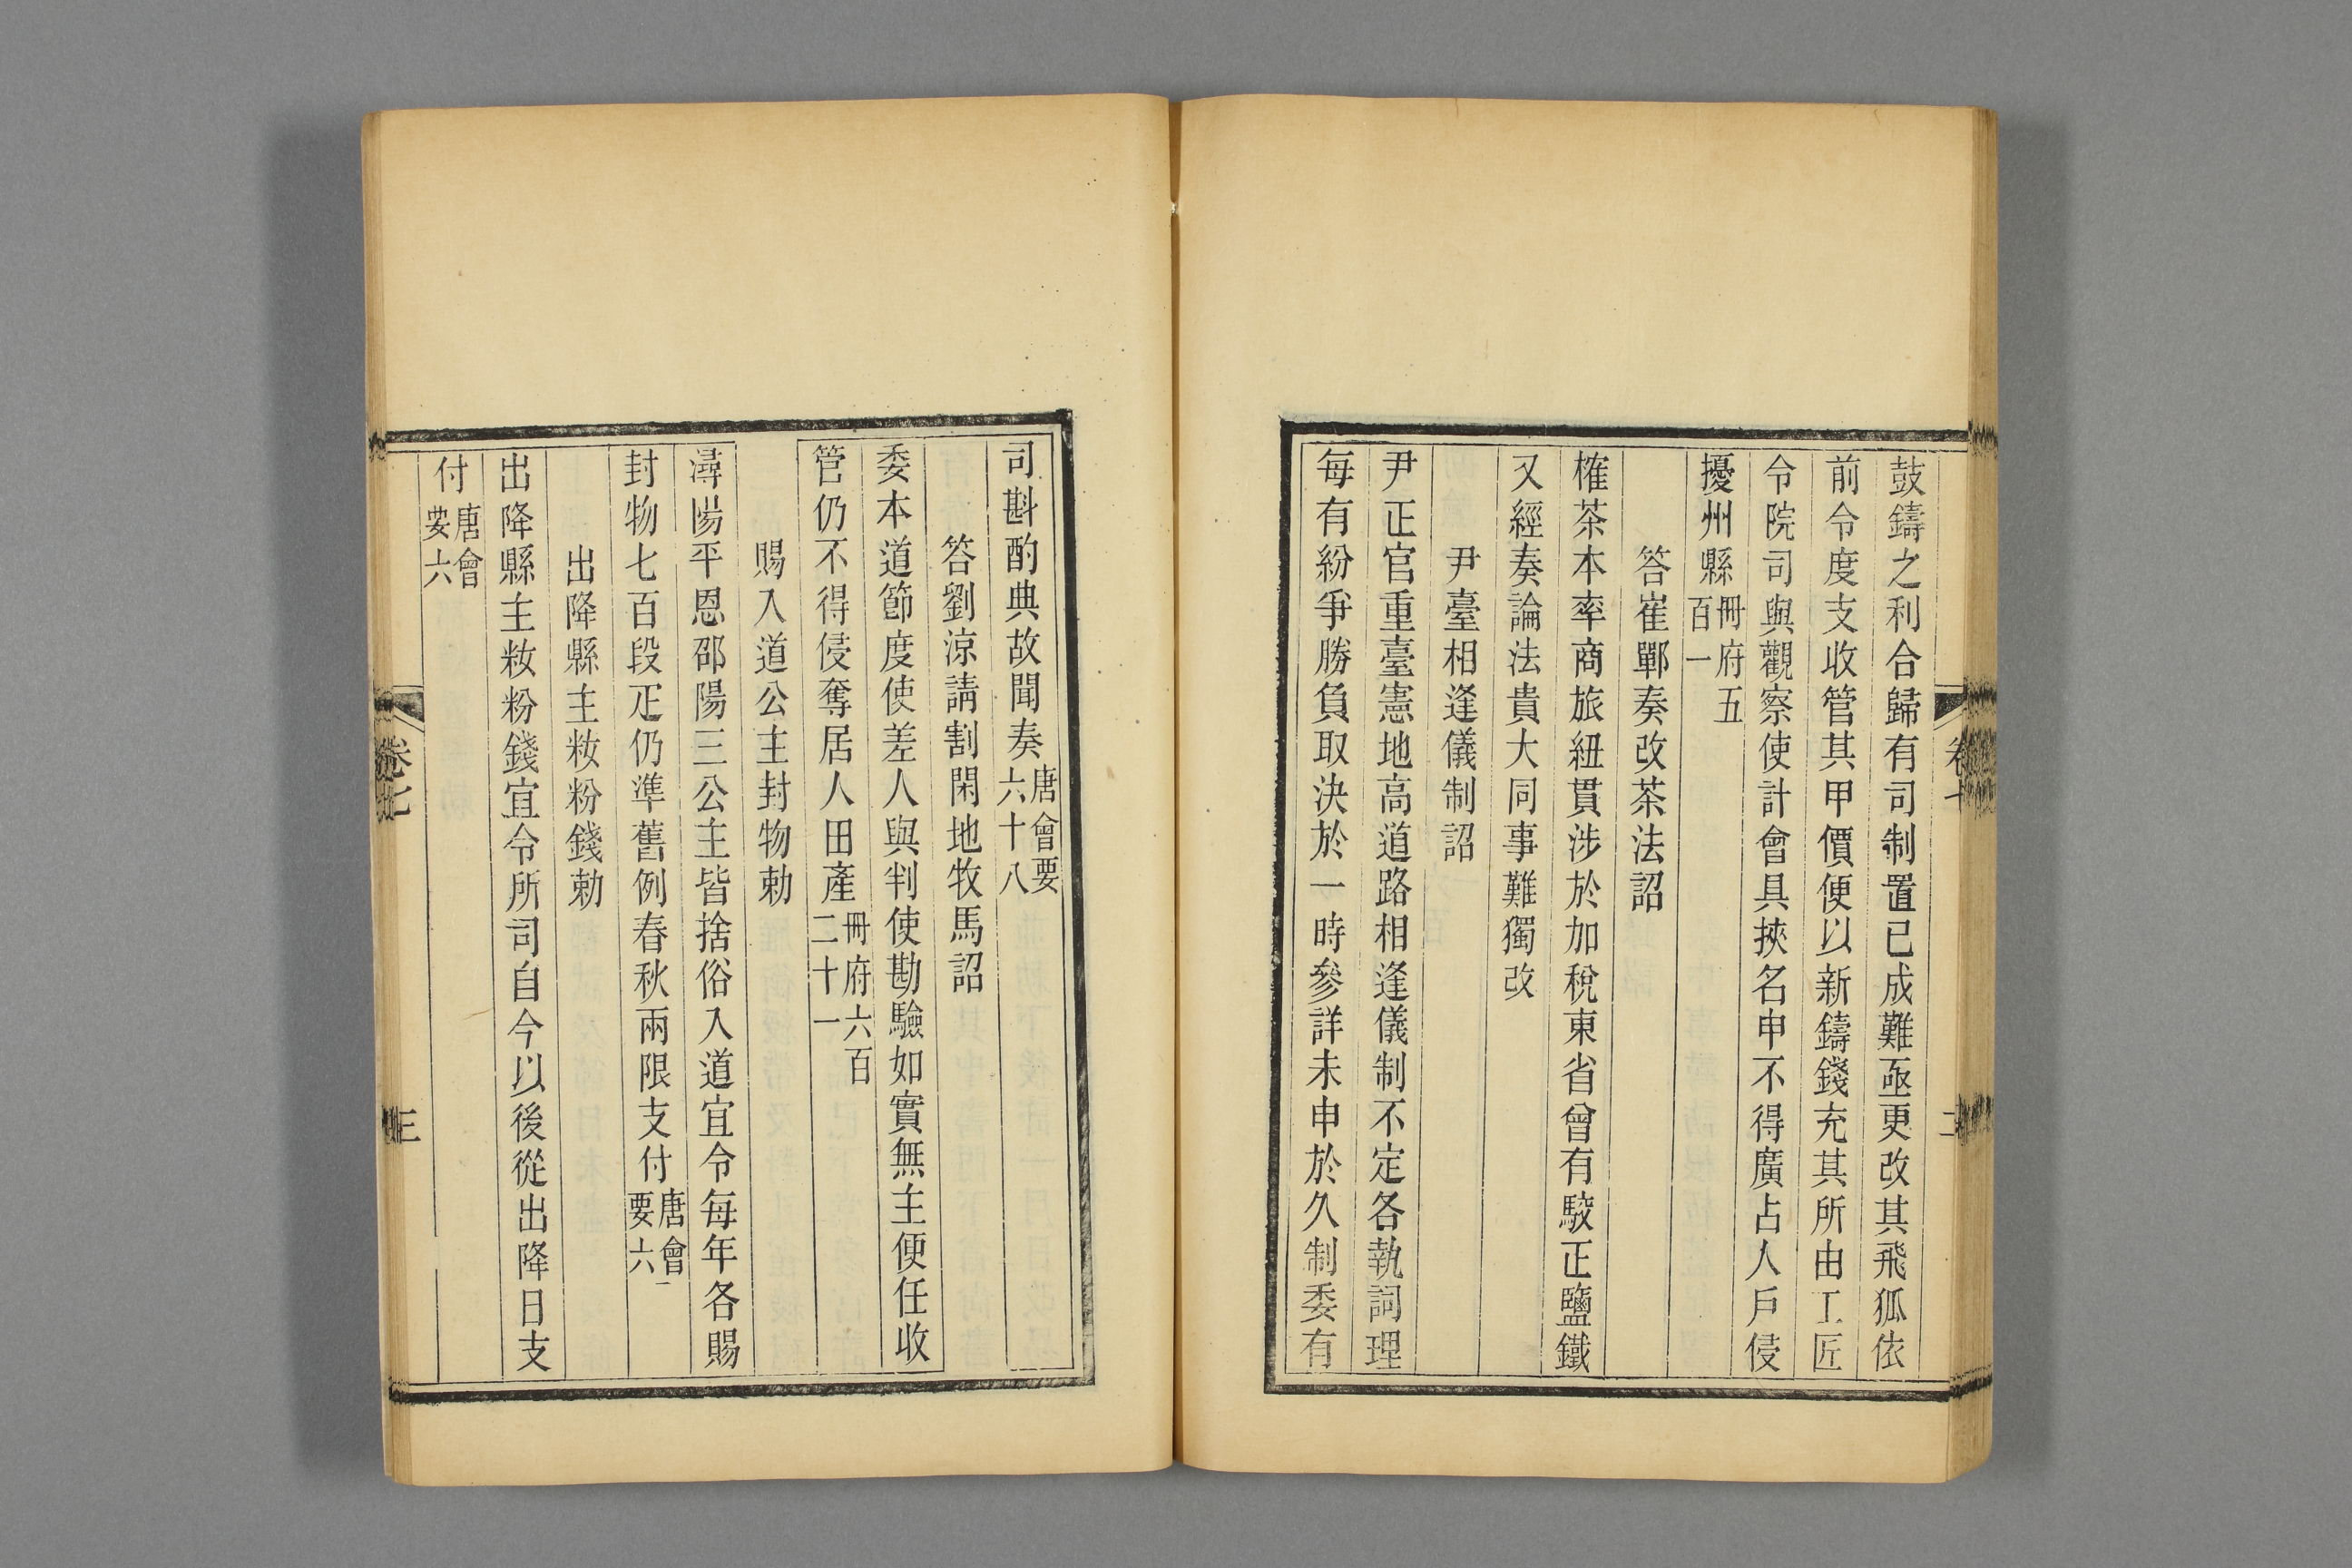 鼓鑄之利合歸有司制置已成難亟更改其飛狐依
前令度支收管其甲價便以新鑄錢充其所由工匠
令院司與觀察使計會具挾名申不得廣占人戶侵
擾州縣冊府五百一
答崔鄲奏改茶法詔
榷茶本率商旅紐貫涉於加稅東省曾有駮正鹽鐵
又經奏論法貴大同事難獨改
尹臺相逢儀制詔
尹正官重臺憲地高道路相逢儀制不定各執詞理
每有紛爭勝負取決於一時參詳未申於久制委有
司斟酌典故聞奏唐會要六十八
答劉涼請割閑地牧馬詔
委本道節度使差人與判使勘驗如實無主便任收
管仍不得侵奪居人田產冊府六百二十一
賜入道公主封物勅
潯陽平恩邵陽三公主皆捨俗入道宜令每年各賜
封物七百段疋仍準舊例春秋兩限支付唐會要六
出降縣主妝粉錢勅
出降縣主妝粉錢宜令所司自今以後從出降日支
付唐會要六
卷七